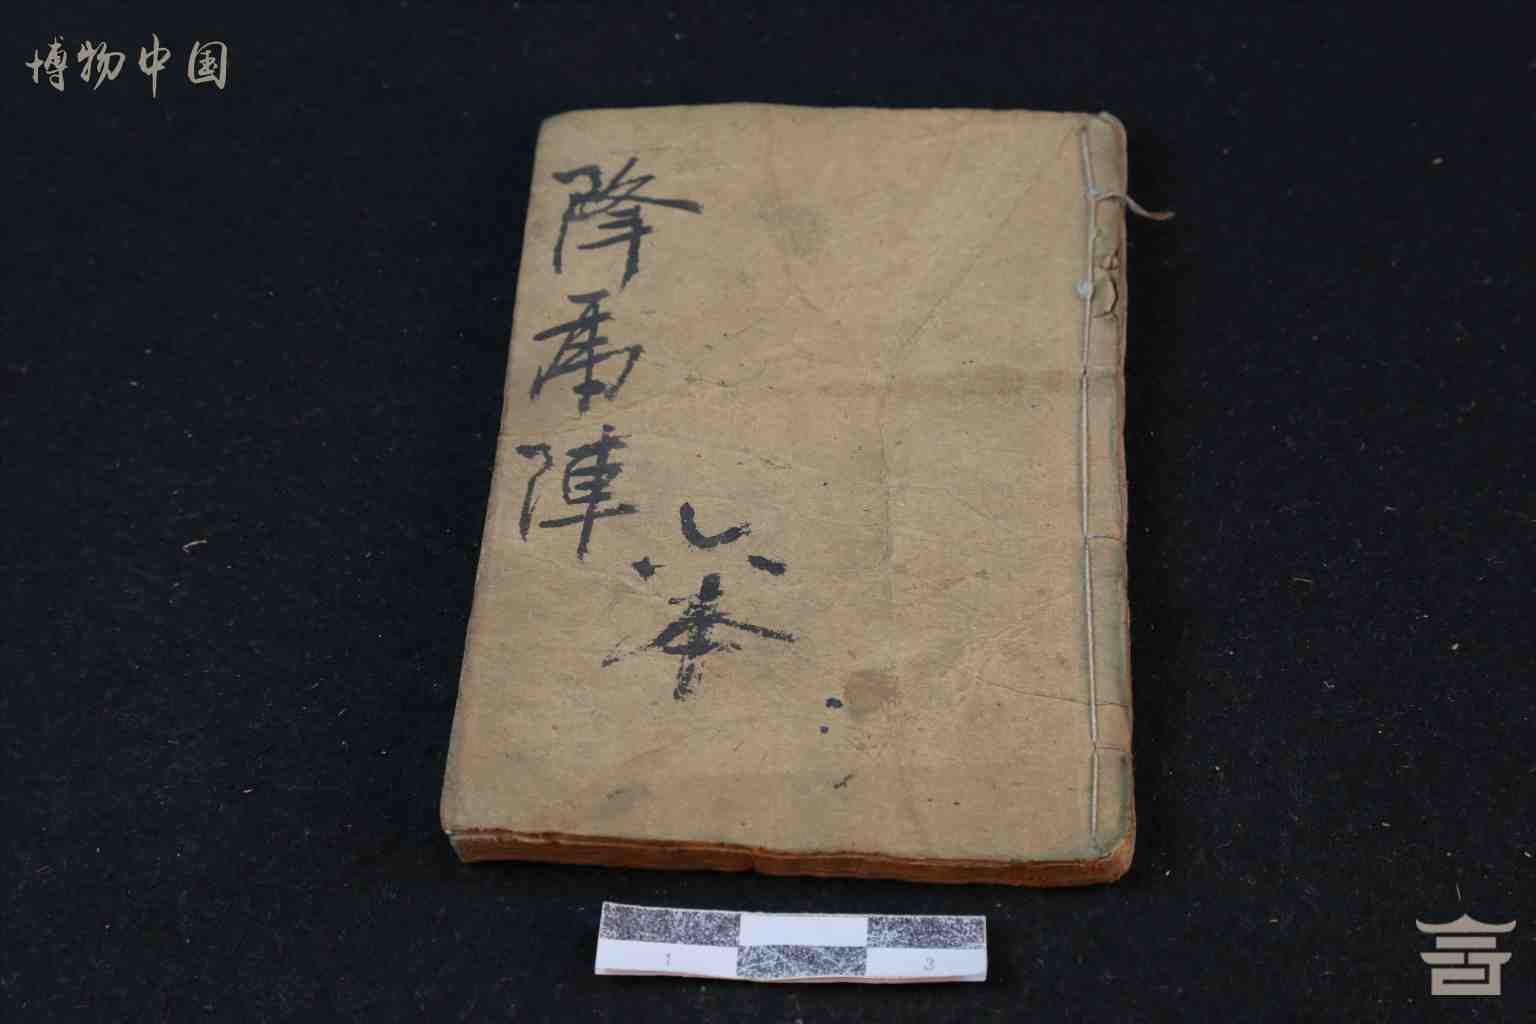 博物中国
降虎陣
六本
1 3